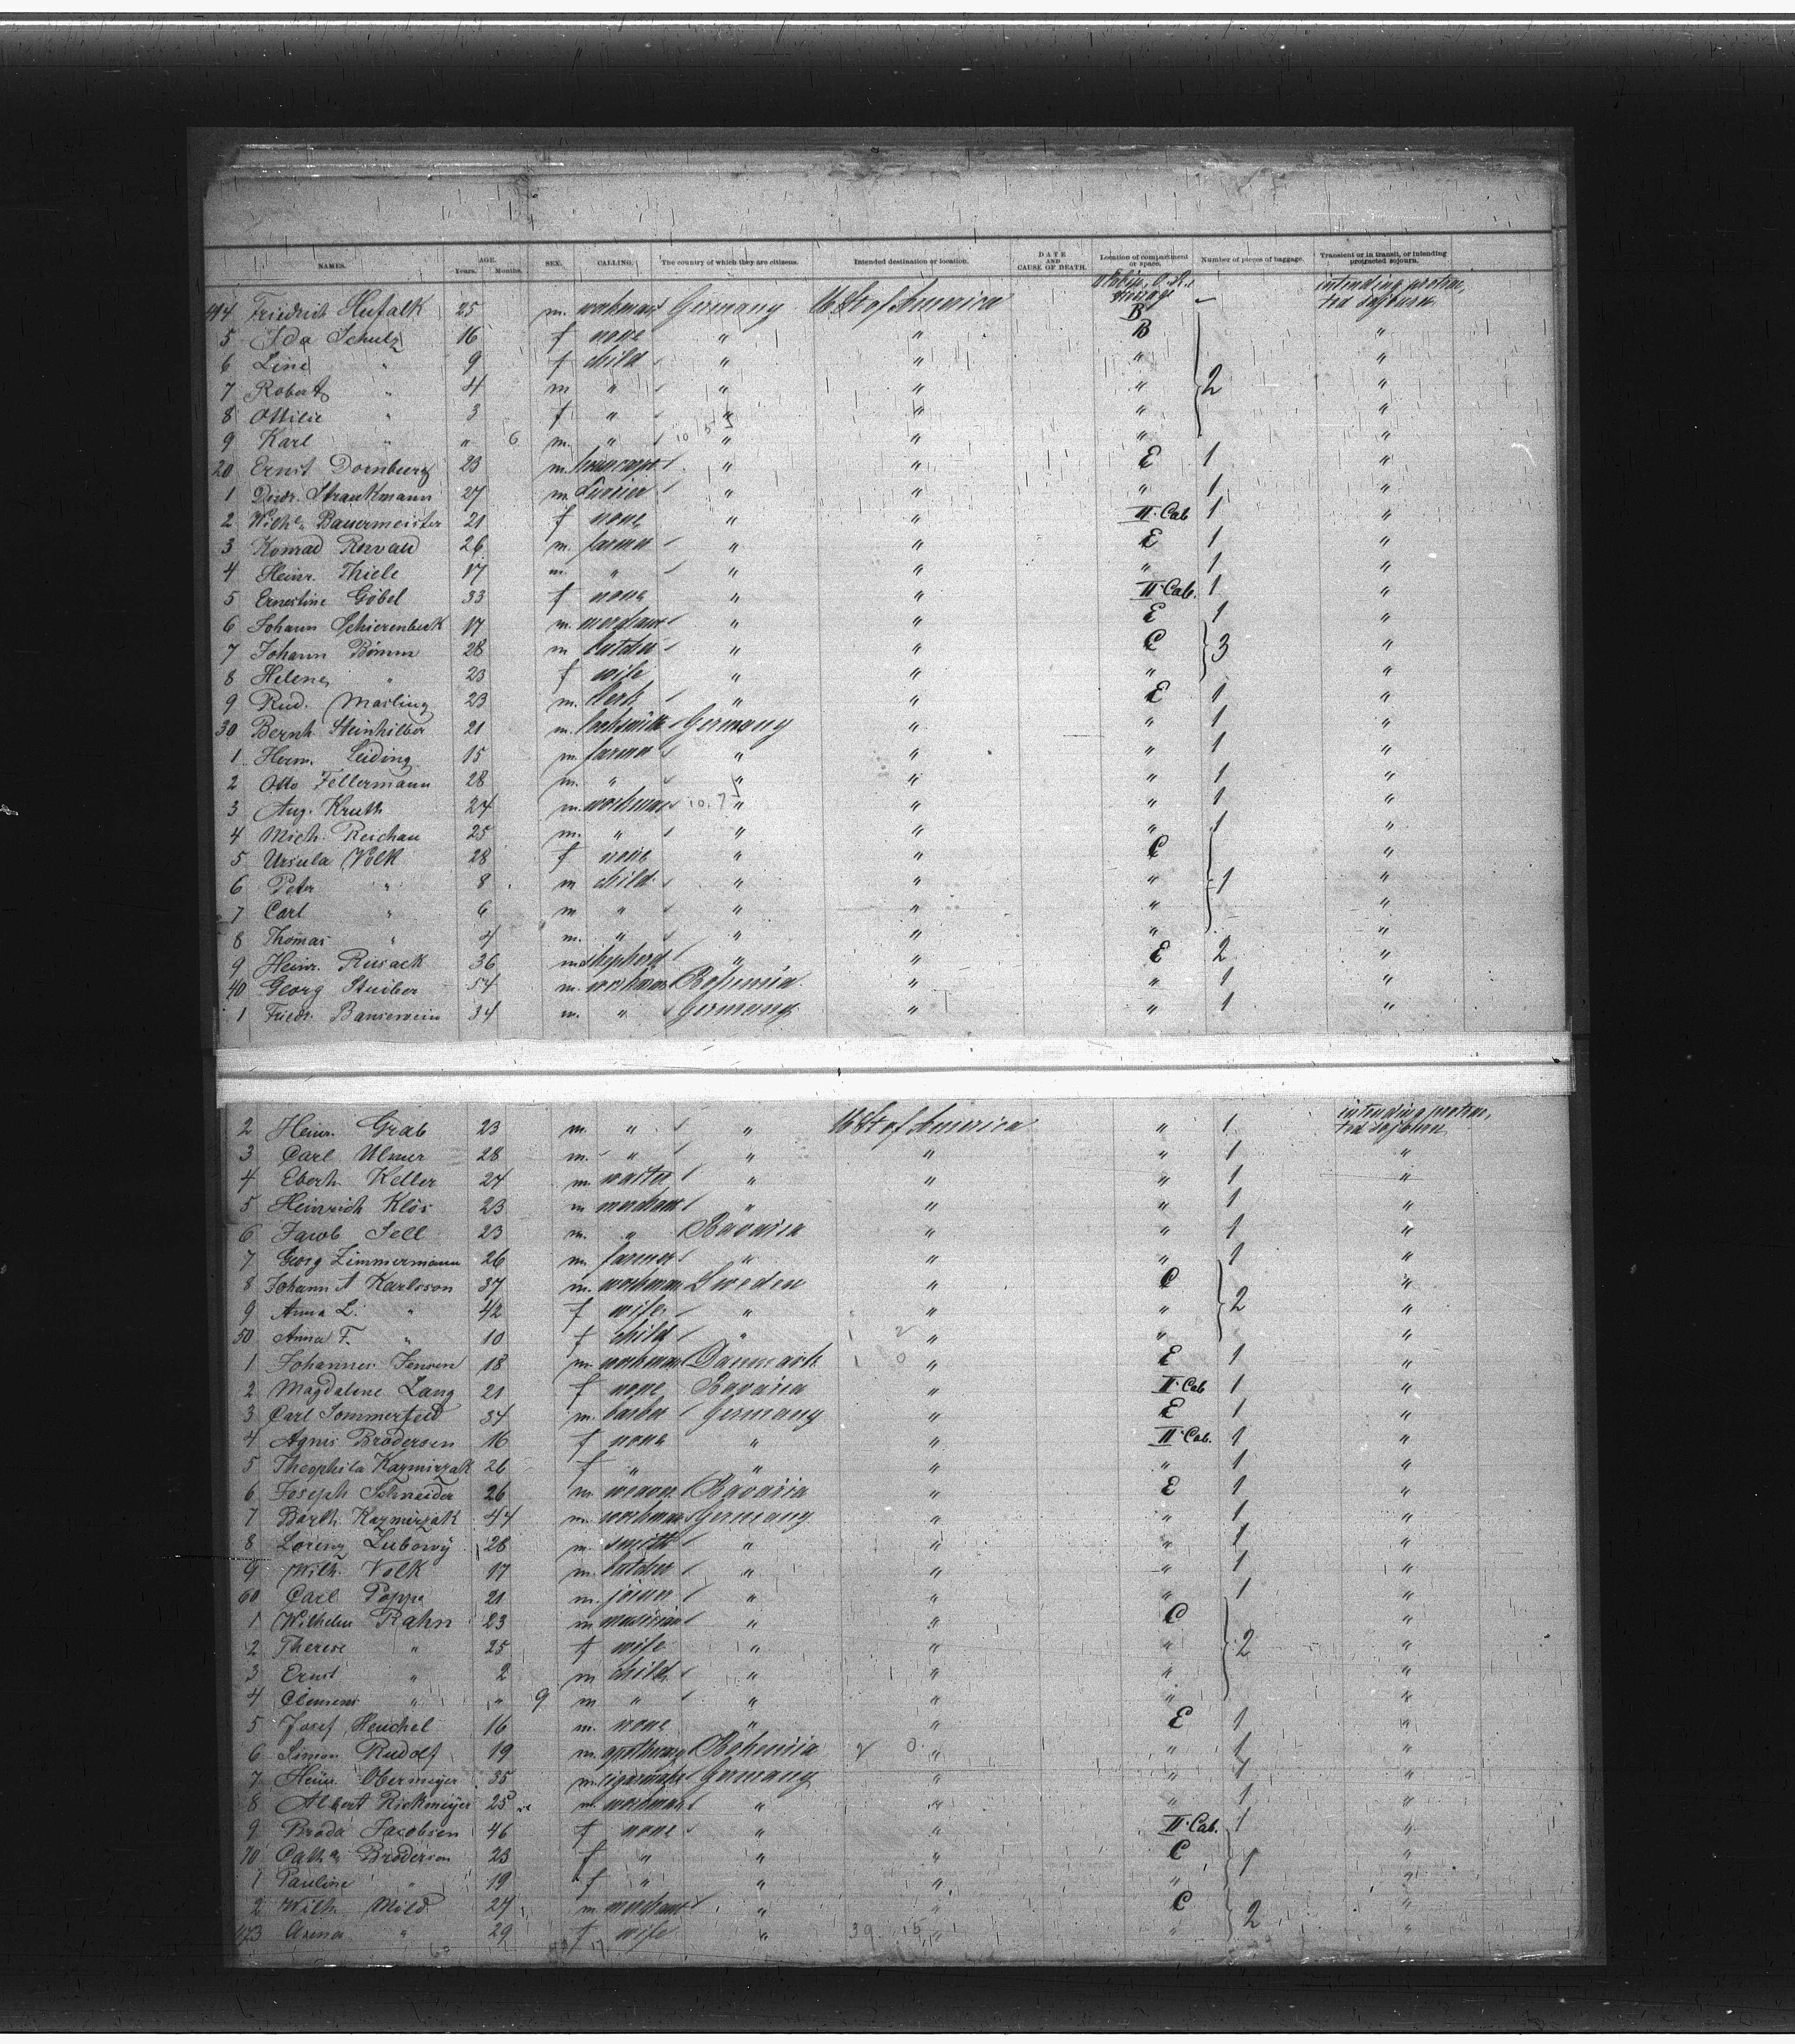 NAMES. AGE. Years. Months. SEX. CALLING. The country of which they are citizens. Intended destination or location. DATE AND CAUSE OF DEATH. Location of compartment or space. Number of pieces of baggage. Transient or in transit, or intending protracted sojourn.
414 Friedrich Hufalk 25 m. workman Germany U St of America steerage B intending protrac, ted sojourn
5 Ida Schulz 16 f none " " B "
6 Line " 9 f child " " " "
7 Robert " 4 m " " " " 2 "
8 Ottilie " 3 f " " " " "
9 Karl " " 6 m. " " " " "
20 Ernst Dornburg 23 m. " " E 1 "
1 Diedr. Strankmann 27 m. " " " 1 "
2 Wilh. Bauermeister 21 f none " " II. Cab 1 "
3 Konrad 26 m. farmer " " E 1 "
4 Heinr. Thiele 17 m. " " " " 1 "
5 Ernestine Göbel 33 f none " " II Cab. 1 "
6 Johann Schierenbeck 17 m. merchant " " E 1 "
7 Johann Bömm 28 m butcher " " C 3 "
8 Helene " 23 f wife " " " "
9 Rud. Masling 23 m. clerk " " E 1 "
30 Bernh. Steinhilber 21 m. locksmith Germany " " 1 "
1 Herm. Leiding 15 m farmer " " " 1 "
2 Otto Fellermann 28 m. " " " " 1 "
3 Aug. Kruth 24 m. workman " " " 1 "
4 Mich. Reichau 25 m. " " " " 1 "
5 Ursula Volk 28 f none " " C "
6 Peter " 8 m child " " " 1 "
7 Carl " 6 m " " " " "
8 Thomas " 4 m. " " " " "
9 Heinr. Rusack 36 m shepherd " " E 2 "
40 Georg Stuiber 54 m. workman Bohemia " " 1 "
1 Friedr. Bauserwein 34 m. " Germany " " 1 "
2 Heinr. Grab 23 m. " " U St of America " 1 intending protrac, ted sojourn
3 Carl Ulmer 28 m. " " " " 1 "
4 Eberh. Keller 24 m waiter " " " 1 "
5 Heinrich Klös 23 m merchant " " " 1 "
6 Jacob Sell 23 m. " Bavaria " " 1 "
7 Georg Zimmermann 26 m. farmer " " " 1 "
8 Johann A Karlsson 37 m. workman Sweden " C 2 "
9 Anna L. " 42 f wife " " " "
50 Anna F. " 10 f child " " " "
1 Johannes Jensen 18 m. workman Danmark " E 1 "
2 Magdalene Lang 21 f none Bavaria " II. Cab 1 "
3 Carl Sommerfeld 34 m. barber Germany " E 1 "
4 Agnes Brodersen 16 f none " " II. Cab. 1 "
5 Theophila Kazmirzak 26 f " " " " 1 "
6 Joseph Schneider 26 m weaver Bavaria " E 1 "
7 Barth. Kazmirzak 44 m. workman Germany " " 1 "
8 Lorenz Lubowy 28 m. smith " " " 1 "
9 Wilh. Volk 17 m. butcher " " " 1 "
60 Carl Poppe 21 m. joiner " " " 1 "
1 Wilhelm Rahn 23 m musician " " C "
2 Therese " 25 f wife " " " 2 "
3 Ernst " 2 m child " " " "
4 Clemens " " 9 m " " " " "
5 Josef Henchel 16 m. none " " E 1 "
6 Simon Rudolf 19 m. apothecary Bohemia " " 1 "
7 Heinr. Obermeyer 35 m. cigarmaker Germany " " 1 "
8 Albert Rickmeyer 25 m. workman " " " 1 "
9 Broda Jacobsen 46 f none " " II. Cab. 1 "
70 Cath. Brodersen 23 f " " " C 1 "
1 Pauline " 19 f " " " " "
2 Wilh. Mild 27 m. merchant " " C 2 "
473 Anna " 29 f wife " " " "